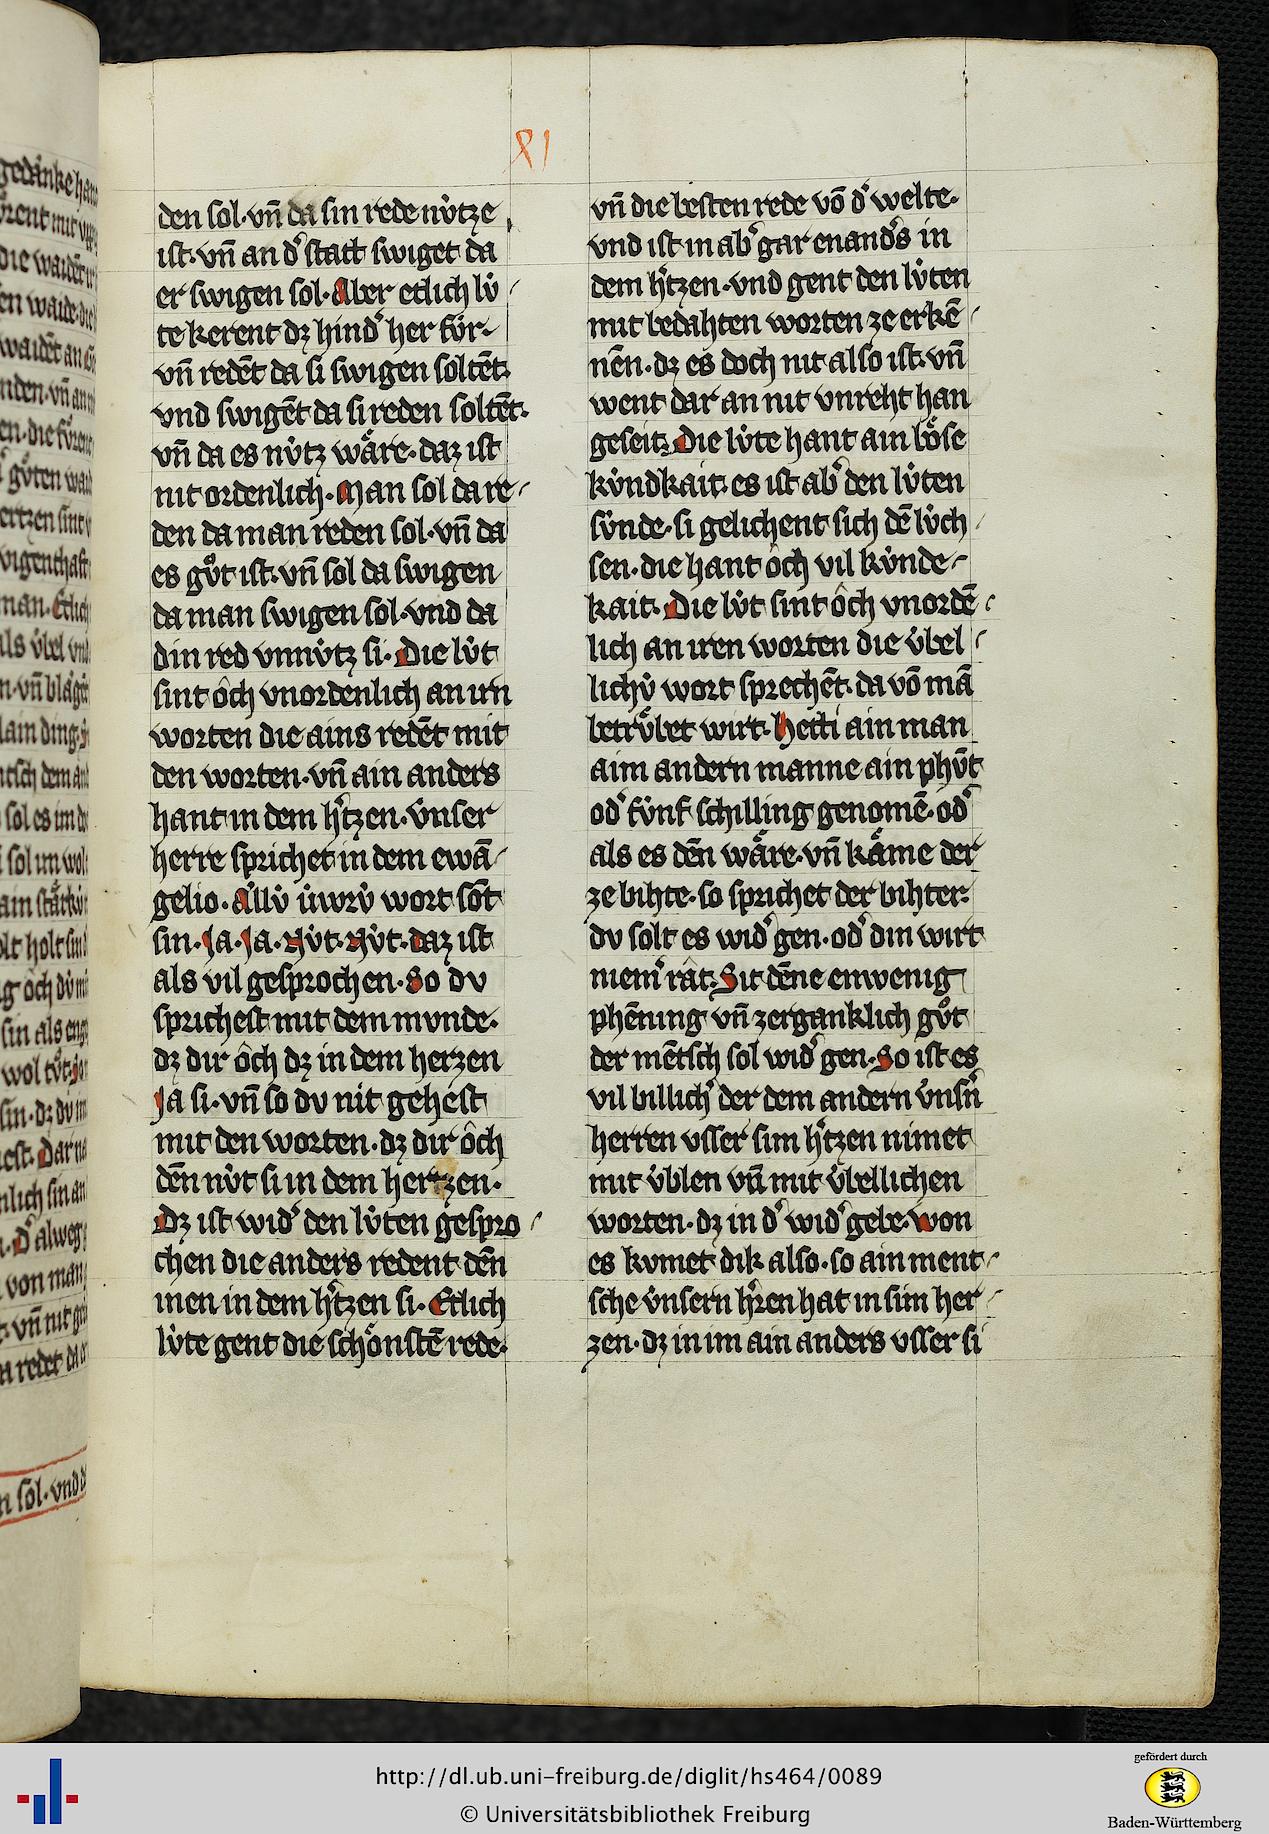 XI
den sol · vn̄ da sin rede nv̇tze
ist · vn̄ an d͛ statt swiget da
er swigen sol · Aber etlich lv̇
te kerent dz hind͛ her fv̇r
vn̄ redēt da si swigen soltēt ·
vnd swigēt da si reden soltēt ·
vn̄ da es nv̇tz wåre · daz ist
nit ordenlich · Man sol da re
den da man reden sol · vn̄ da
es gůt ist · vn̄ sol da swigen
da man swigen sol · vnd da
din red vnnv̇tz si · Die lv̇t
sint ôch vnordenlich an irn
worten die ains redēt mit
den worten · vn̄ ain anders
hant in dem h͛tzen · v̇nser
herre sprichet in dem ewā
gelio · Allv̇ u̇wrv̇ wort sōt
sin · Ja · Ja · Nv̇t · Nv̇t · daz ist
als vil gesprochen · So dv
sprichest mit dem mvnde ·
dz dir ôch dz in dem herzen
Ja si · vn̄ so dv nit gehest
mit den worten · dz dir ôch
dēn nv̇t si in dem hertzen ·
Dz ist wid͛ den lv̇ten gespro
chen die anders redent dēn
inen in dem h͛tzen si · Etlich
lv̇te gent die schônstē rede ·
vn̄ die besten rede vō d͛ welte ·
vnd ist in ab͛ gar enand͛s in
dem h͛tzen · vnd gent den lv̇ten
mit bedahten worten ze erkē
nēn · dz es doch nit also ist · vn̄
went dar an nit vnreht han
geseit · Die lv̇te hant ain lôse
kv̇ndkait · es ist ab͛ den lv̇ten
sv̇nde · si gelichent sich dē lv̇ch
sen · die hant ôch vil kv̇nde
kait · Die lv̇t sint ôch vnordē
lich an iren worten die v̇bel
lichv̇ wort sprechēt · da vō mā
betrv̊bet wirt · Hetti ain man
aim andern manne ain phv̄t
od͛ fv̇nf schilling genomē · od͛
als es dēn wåre · vn̄ kåme der
ze bihte · so sprichet der bihter ·
dv solt es wid͛ gen · od͛ din wirt
niem͛ rât · Sit dēne enwenig
phēning vn̄ zerganklich gůt
der mētsch sol wid͛ gen · So ist es
vil billich͛ der dem andern v̇nsn͛
herren vsser sim h͛tzen nimet
mit v̇blen vn̄ mit v̇bellichen
worten · dz in d͛ wid͛ gebe · won
es kvmet dik also · so ain ment
sche v̇nsern h͛ren hat in sim her
zen · dz in im ain anders vsser si
http://dl.ub.uni-freiburg.de/diglit/hs464/0089
© Universitätsbibliothek Freiburg
gefördert durch
Baden-Württemberg